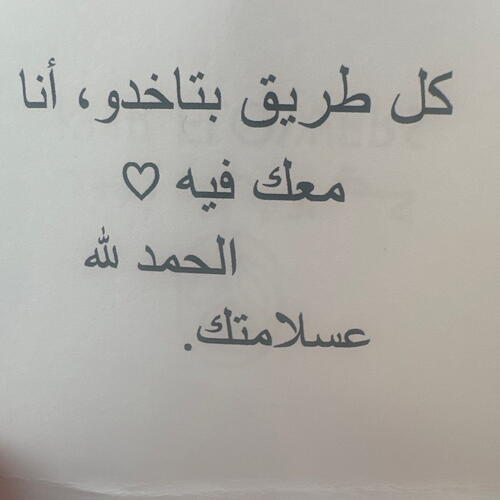 كل طريق بتاخدو، أنا
معك فيه ♡
الحمد لله
عسلامتك.